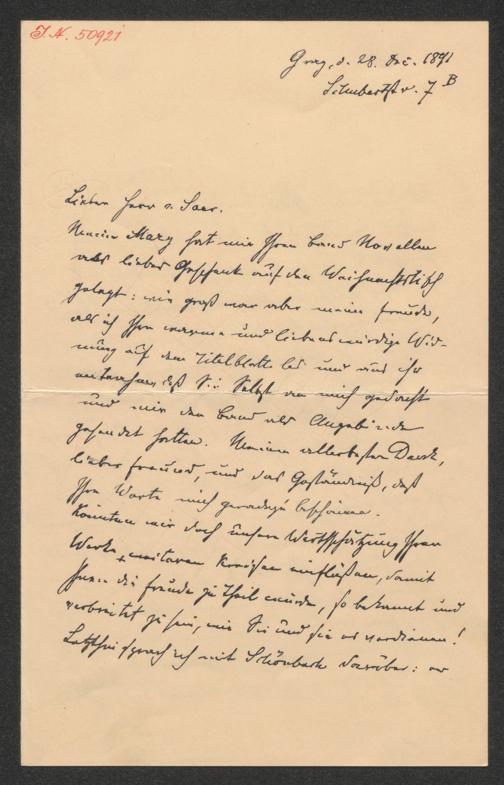 J.N. 50921
Graz, d. 28. Dec. 1891
Schubertstr. 7 B
Lieber Herr v. Saar.
Meine Mary hat mir Ihren Band Novellen
als liebes Geschenk auf den Weihnachtstisch
gelegt: wie groß war aber meine Freude,
als ich Ihre warme und liebenswürdige Wid-
mung auf dem Titelblatte las und aus ihr
entnahm daß Sie Selbst an mich gedacht
und mir den Band als Angebinde
gesendet hatten. Meinen allerbesten Dank,
lieber Freund, und das Geständniß, daß
Ihre Worte mich geradezu beschämen.
Könnten wir doch unsere Wertschätzung Ihrer
Werke weiteren Kreisen einflößen, damit
Ihnen die Freude zu Theil würde, so bekannt und
verbreitet zu sein, wie Sie und sie es verdienen!
Letzthin sprach ich mit Schönbach darüber: er